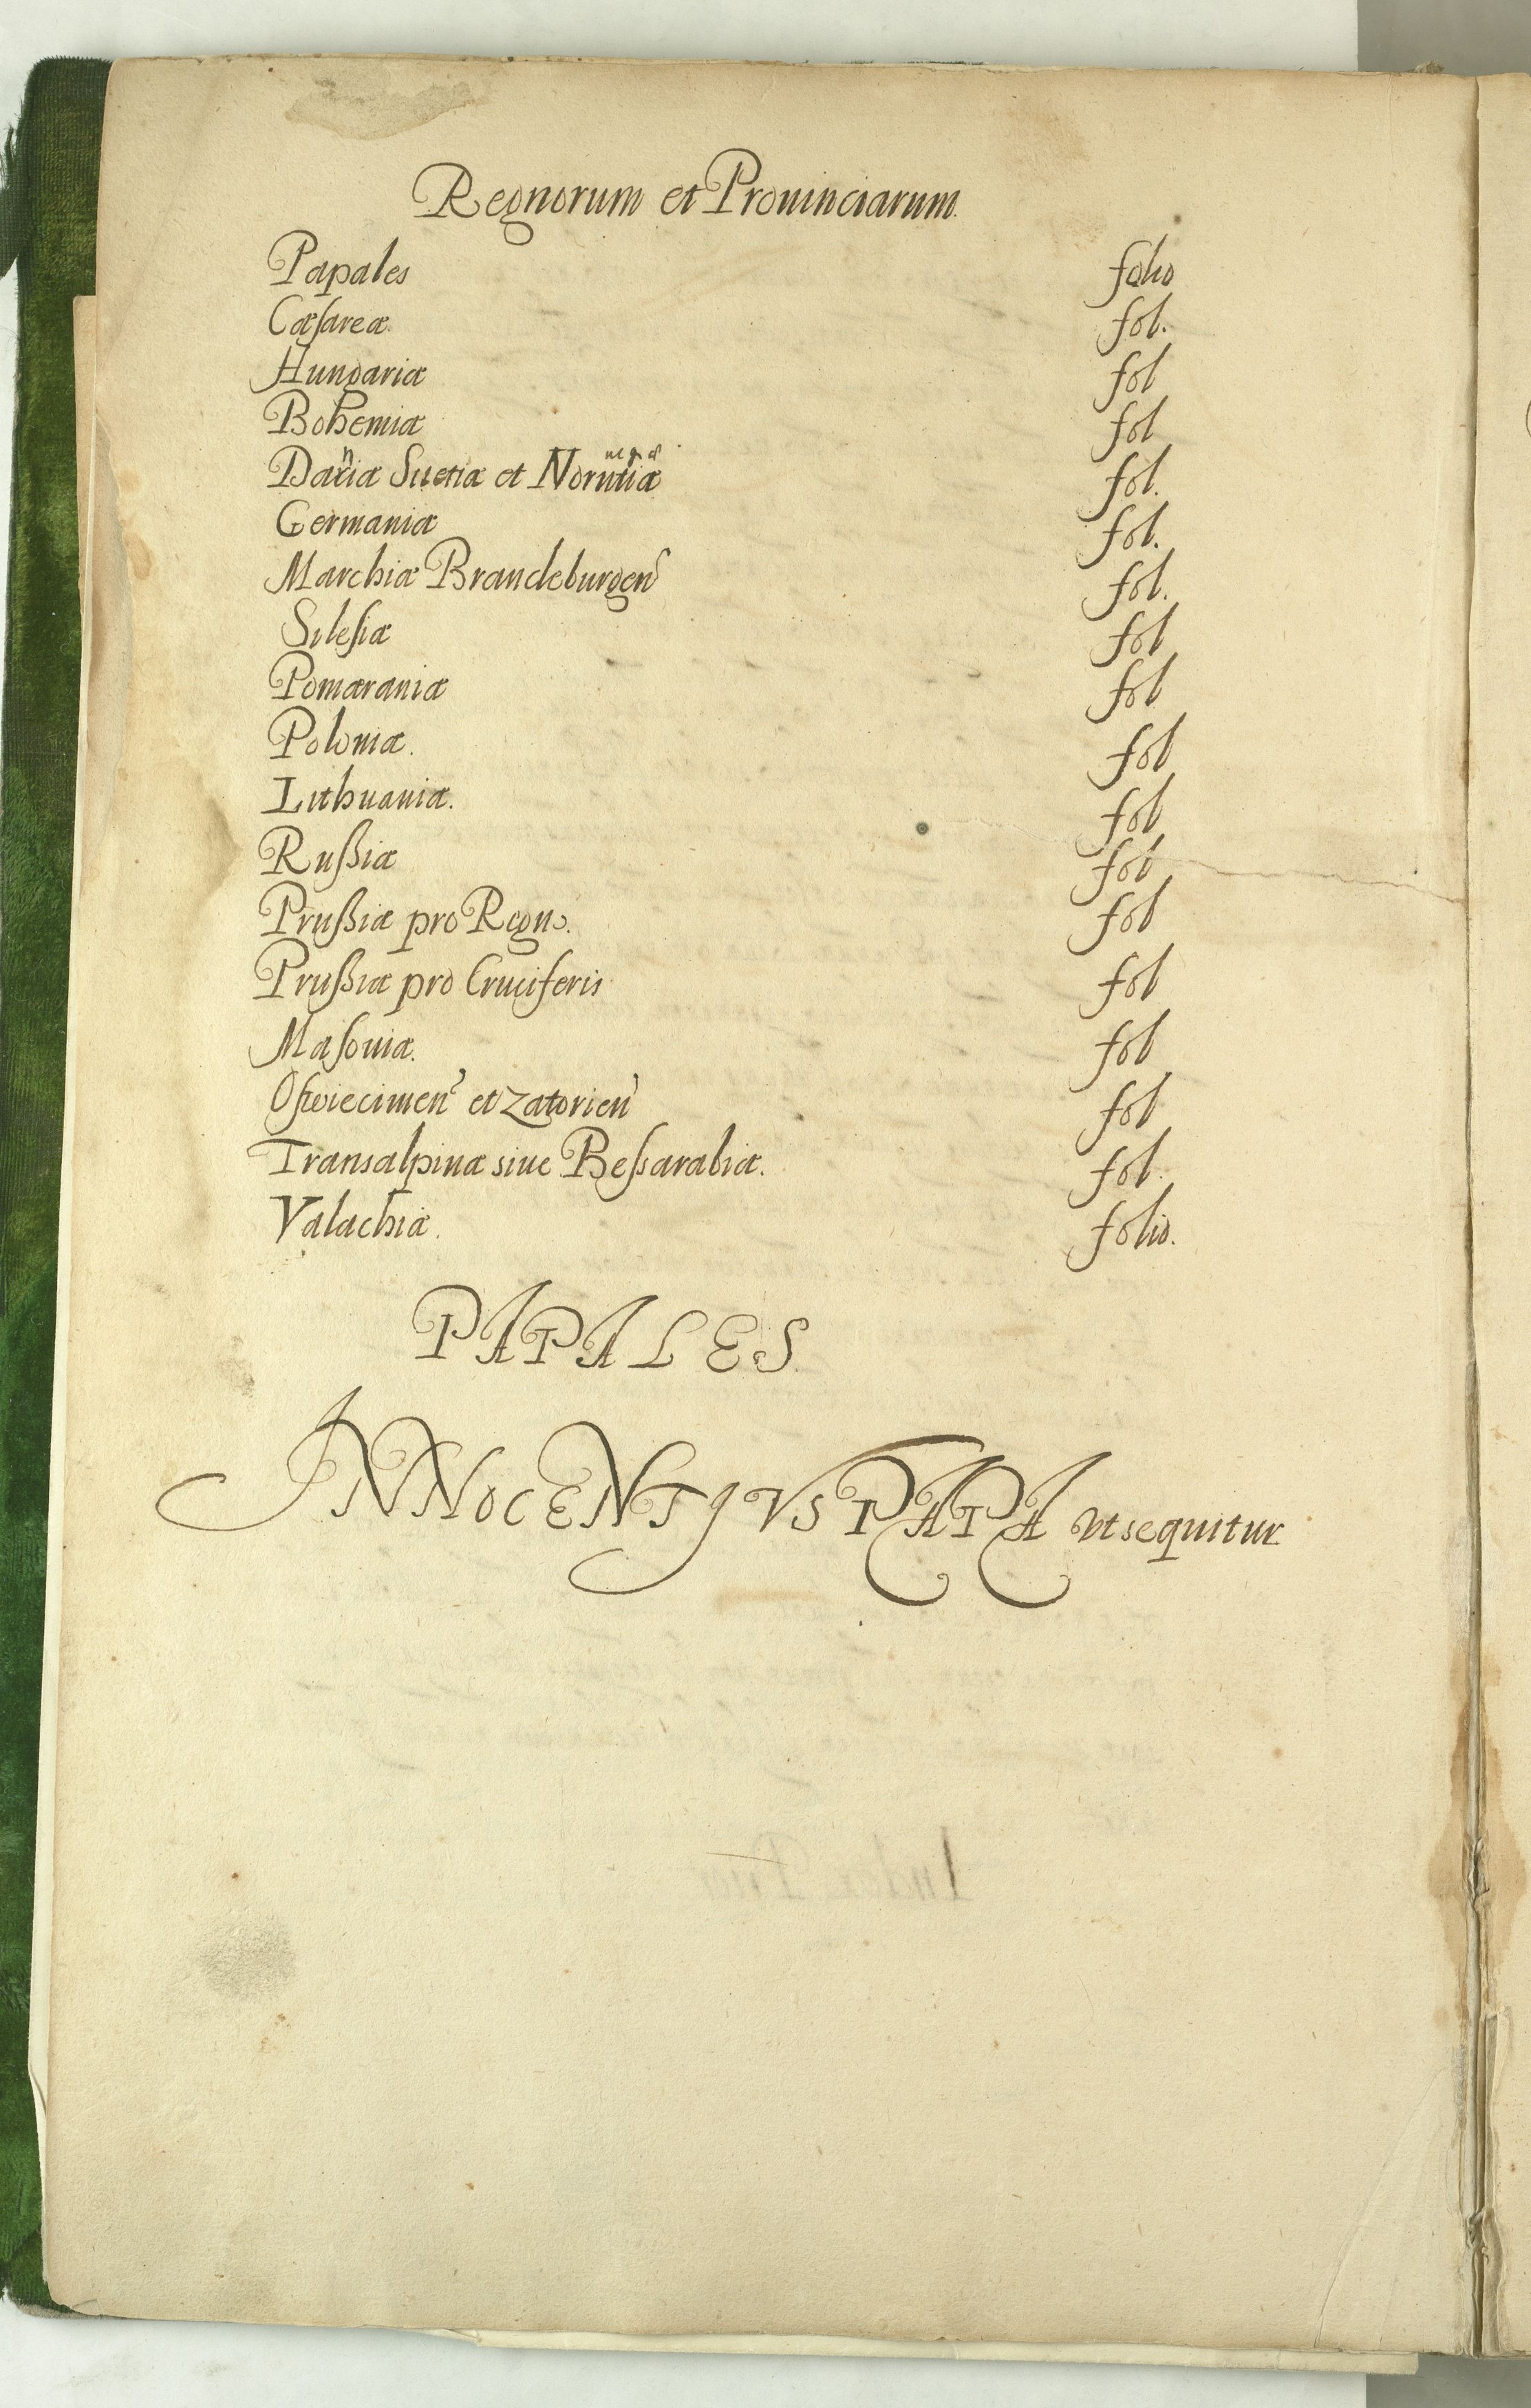 Regnorum et Prouinciarum.
Papales folio
Cæſareæ. fol.
Hungariæ fol
Bohemiæ fol
Daciæ Suetiæ et Norutiæ fol.
Germaniæ fol.
Marchiæ Brandeburgen fol.
Sileſiæ fol
Pomæraniæ fol
Poloniæ. fol
Lithuaniæ. fol
Rußiæ fol
Prußiæ pro Regno. fol
Prußiæ pro Cruciferis fol
Maſouiæ. fol
Oſwiecimen et Zatorien fol
Transalpinæ siue Beſsarabiæ. fol.
Valachiæ. folio.
PAPALES
INNOCENTJVS PAPA vt sequitur